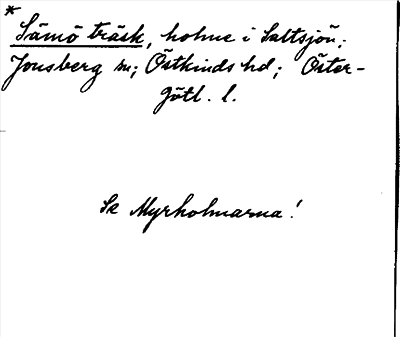 *
Sämö träsk, holme i Saltsjön;
Jonsberg sn; Östkinds hd; Öster-
götl. l.
Se Myrholmarna!